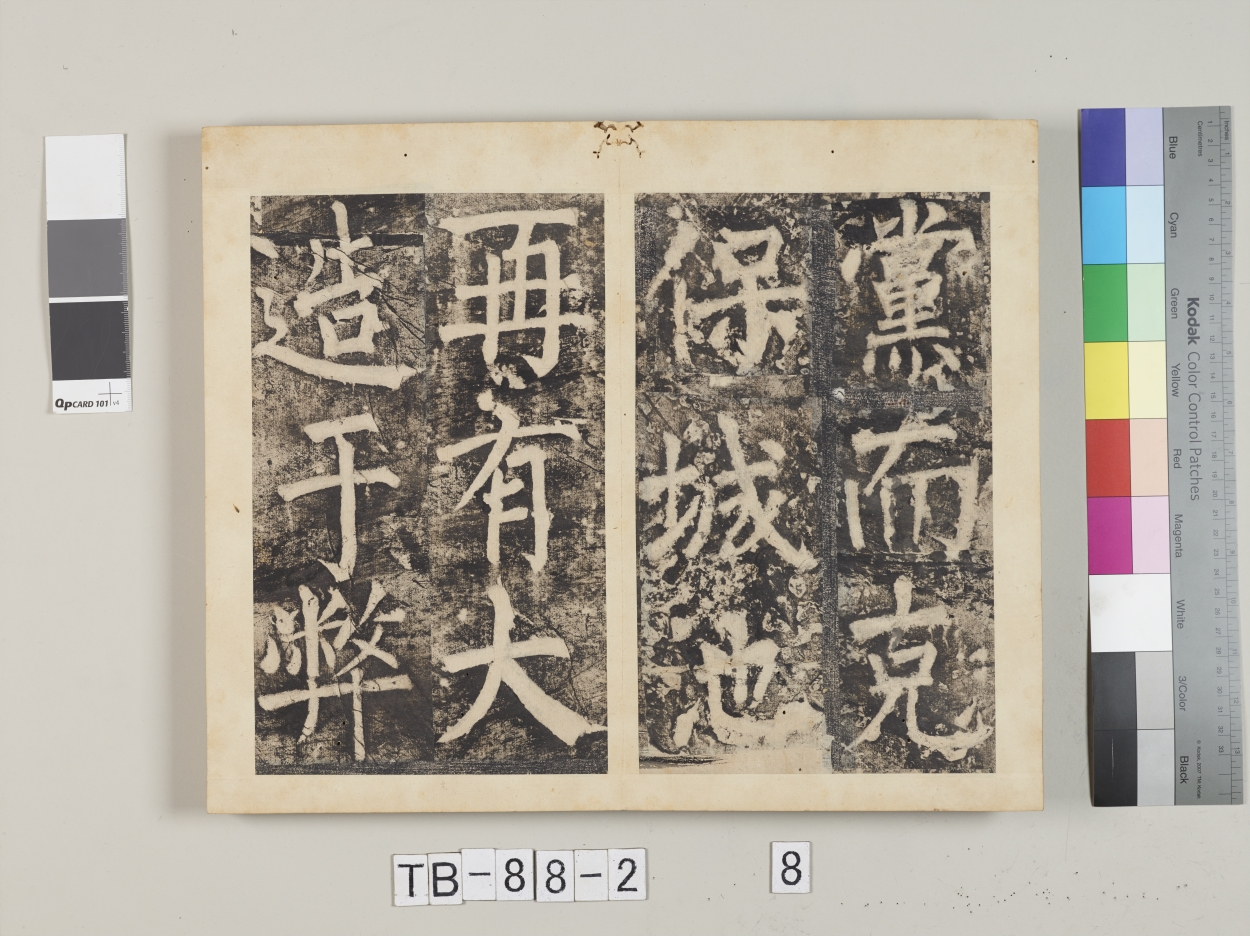 黨而克
保城也
再有大
造于弊
QPCARD 101 v4
Kodak Color Control Patches
Blue
Cyan
Green
Yellow
Red
Magenta
White
3/Color
Black
Centimetres
Inches
TB-88-2
8